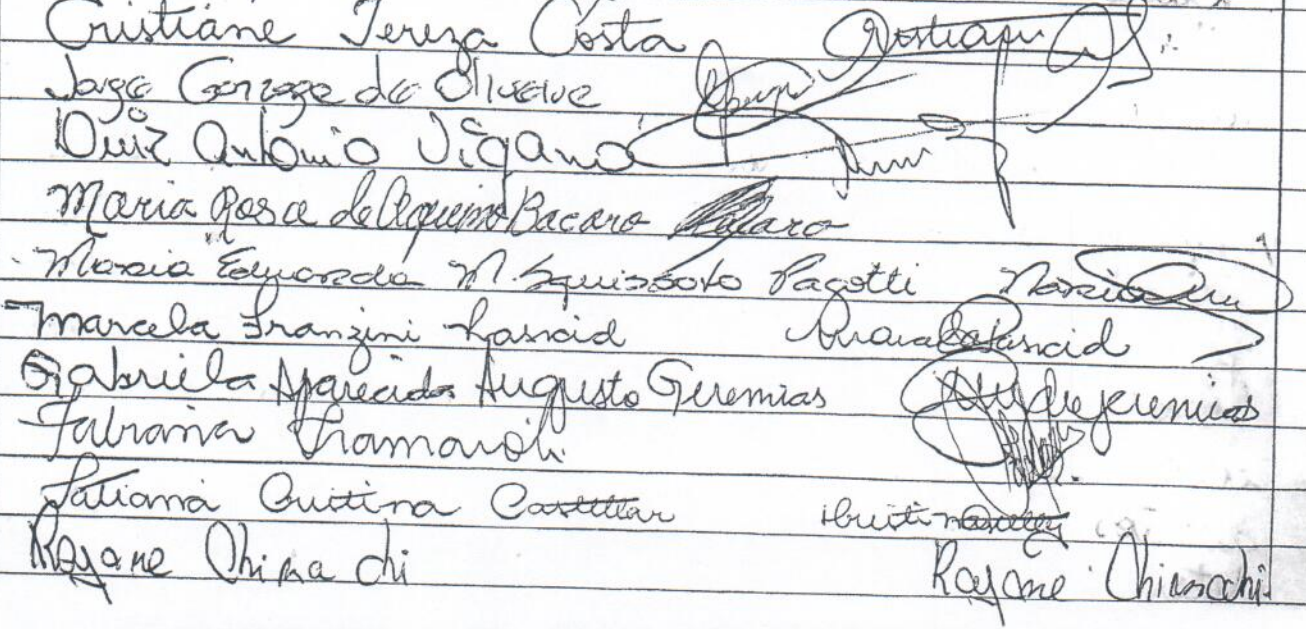 Cristiane Tereza Costa
Jorge Gonzaga de Oliveira
Luiz Antonio Viganó
Maria Rosa de Aquino Bacaro Bacaro
Maria Eduarda M. Squissato Pagotti Maria
Marcela Franzini Marcela
Gabriela Aparecida Augusto Geremias
Fabiana Tramaroli
Tatiana Cristina Castellar
Rayane Chinachi Rayane